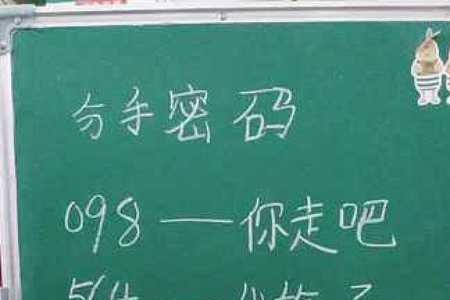 分手密码
098——你走吧